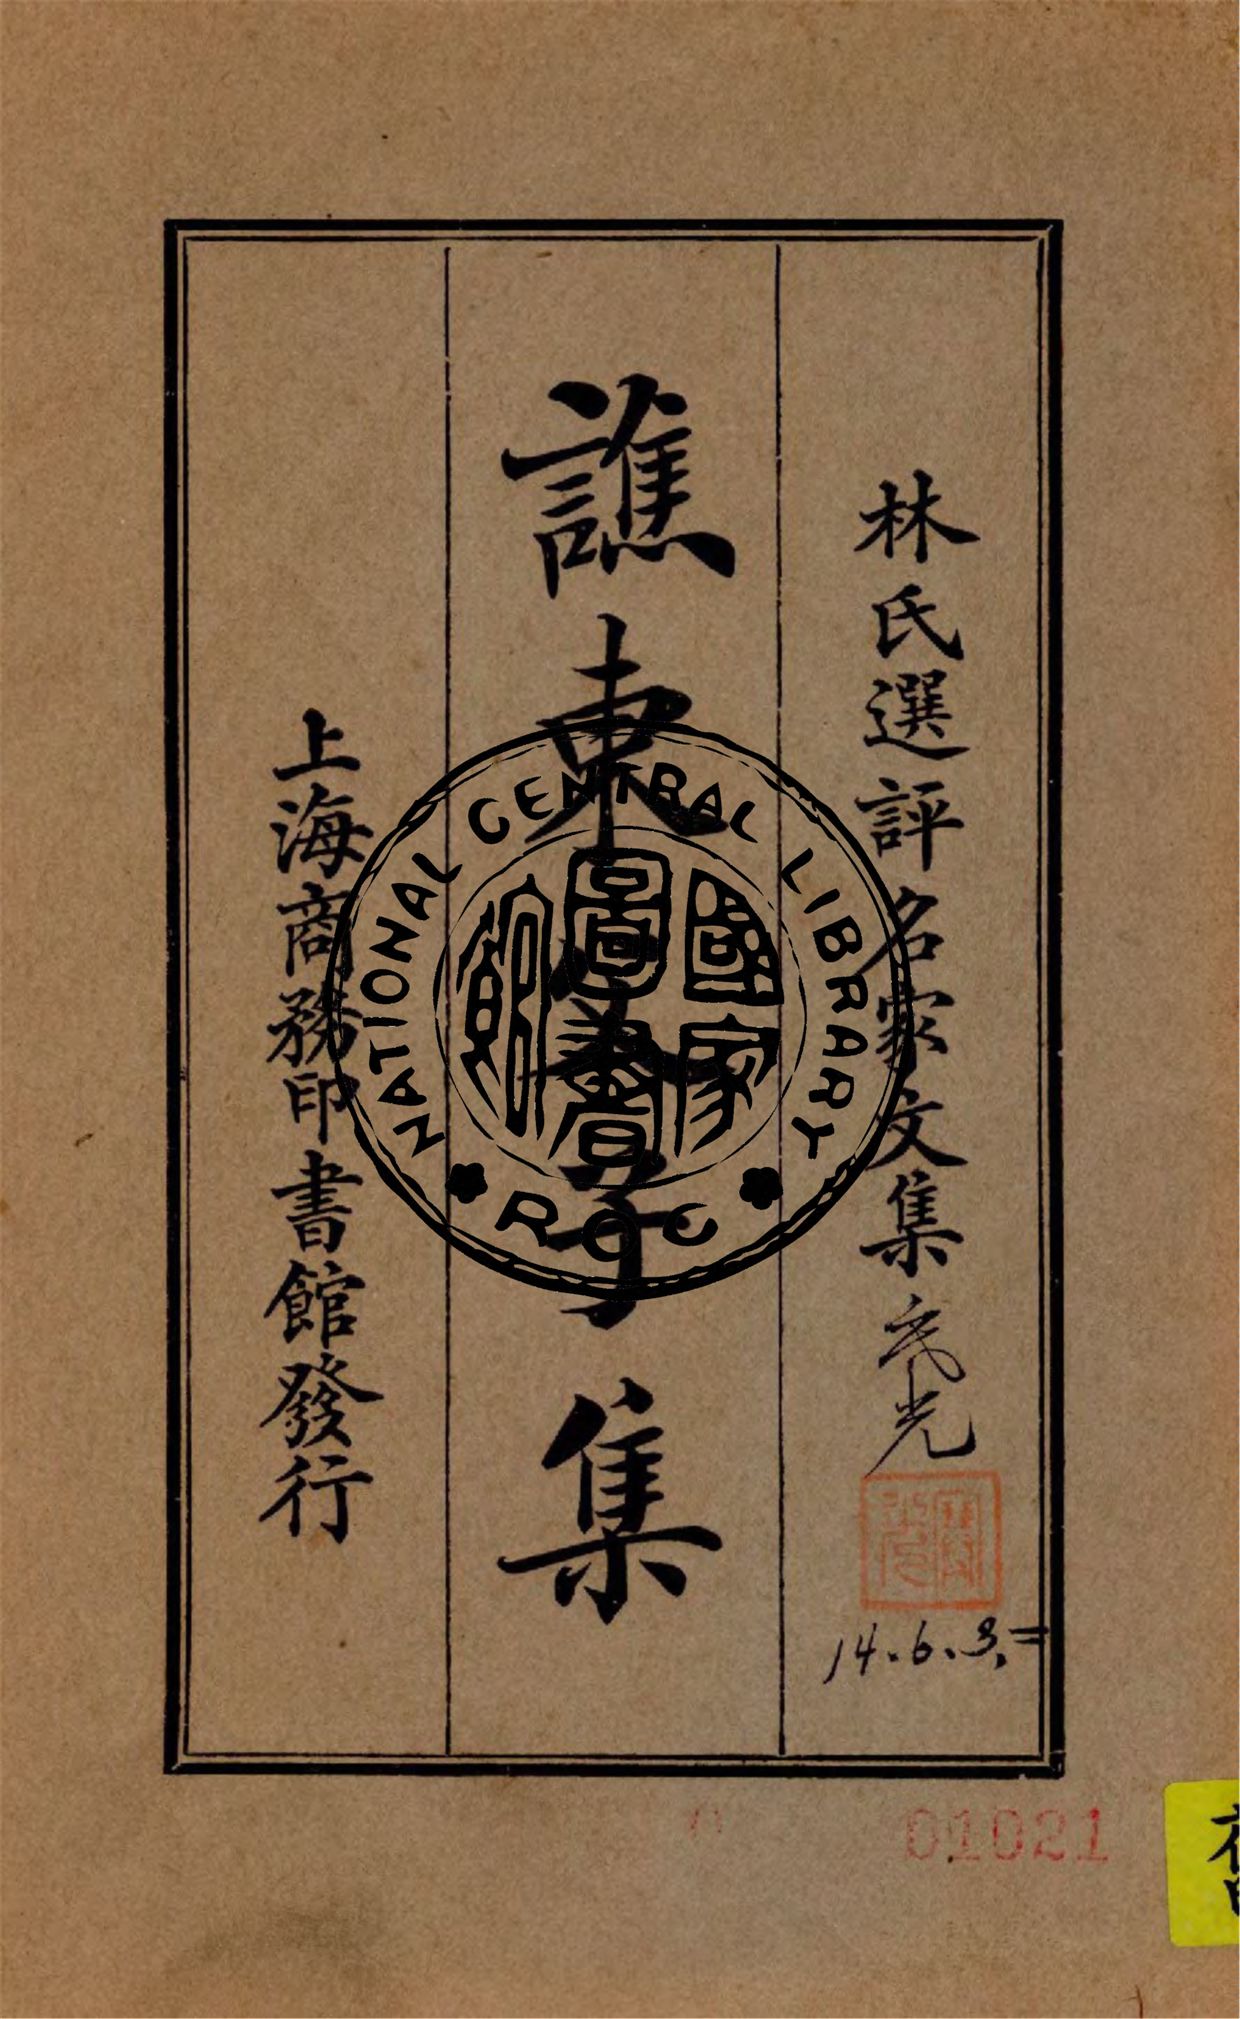 林氏選評名家文集
14.6.3.=
譙東父子集
上海商務印書館發行
NATIONAL CENTRAL LIBRARY
國家
圖書
館
ROC
01021